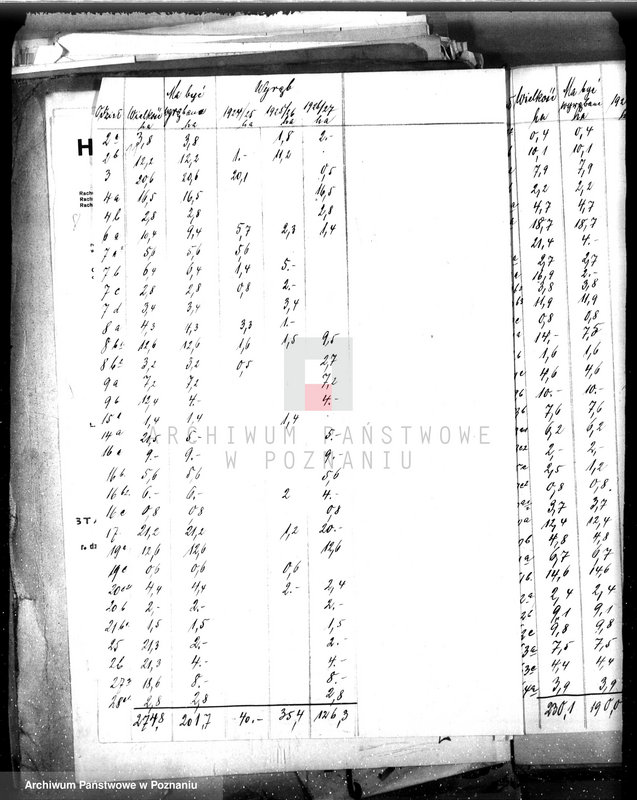 Oddział Wielkość ha Ma być wyrąbane ha Wyrąb 1924/25 ha 1925/26 ha 1926/27 ha
2a 3,8 3,8 1,8 2.-
2b 12,2 12,2 1.- 11,2
3 20,6 20,6 20,1 0,5
4a 16,5 16,5 16,5
4b 2,8 2,8 2,8
6a 10,4 9,4 5,7 2,3 1,4
5,6 5,6 5,6
7b 6,4 6,4 1,4 5.-
7c 2,8 2,8 0,8 2.-
7d 3,4 3,4 3,4
8a 4,3 1,3 3,3 1.-
12,6 12,6 1,6 1,5 9,5
3,2 3,2 0,5 2,7
9a 7,2 7,2 7,2
9b 12,4 4.- 4.-
1,4 1,4 1,4
14a 21,5 5.-
16a 9.- 9.- 9.-
16b 5,6 5,6 5,6
6.- 6.- 2 4.-
16c 0,8 0,8 0,8
17 21,2 21,2 1,2 20.-
19a 12,6 12,6 12,6
19c 0,6 0,6 0,6
4,4 4,4 2.- 2,4
20b 2.- 2.- 2.-
1,5 1,5 1,5
25 21,3 2.- 2.-
26 21,3 4.- 4.-
18,6 8.- 8.-
2,8 2,8 2,8
274,8 201,7 40.- 35,4 126,3
Wielkość ha Ma być wyrąbane ha
0,4 0,4
10,1 10,1
7,9 7,9
2,2 2,2
4,7 4,7
18,7 18,7
21,4 4.-
2,7 2,7
16,9 2.-
3,8 3,8
11,9 11,9
0,8 0,8
14.-
1,6 1,6
4,6 4,6
10.- 10.-
7,6 7,6
6,2 6,2
2.- 2.-
2,5 1,2
0,8 0,8
3,7 3,7
12,4 12,4
4,8 4,8
6,7 6,7
14,6 14,6
2,4 2,4
9,1 9,1
9,8 9,8
7,5 7,5
4,4 4,4
3,9 3,9
230,1 190,0
H
Rach
Rach
Rach
ARCHIWUM PAŃSTWOWE
W POZNANIU
Archiwum Państwowe w Poznaniu